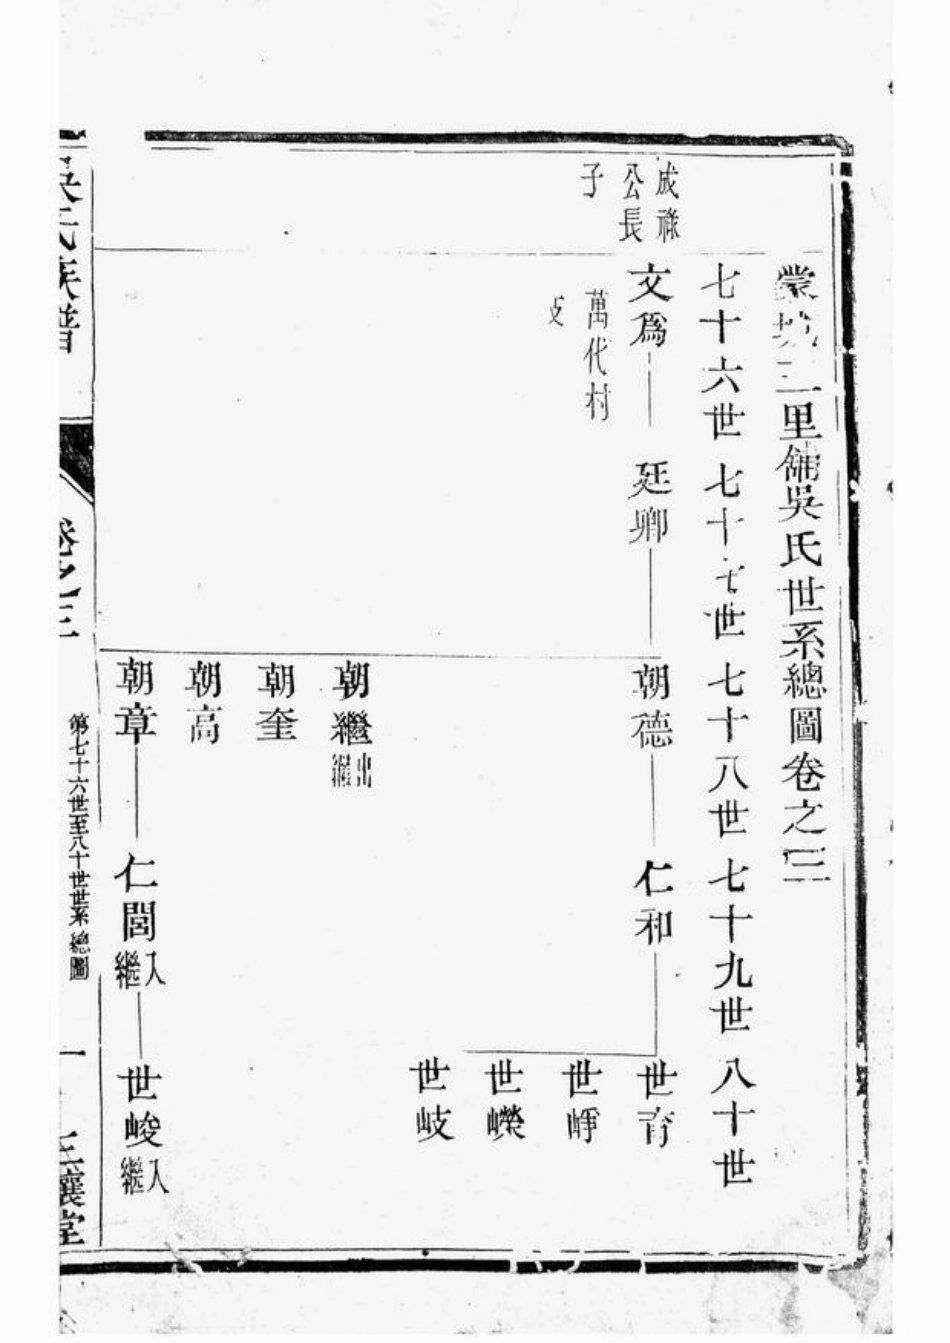 蒙城三里舖吳氏世系總圖卷之三
七十六世 七十七世 七十八世 七十九世 八十世
成祿
公長
子
文爲 廷卿 朝德 仁和 世育
萬代村
支
世崢
世嶸
世岐
朝繼 出繼
朝奎
朝高
朝章 仁閭 入繼 世峻 入繼
吳氏族譜 卷之三 第七十六世至八十世世系總圖 一 三讓堂